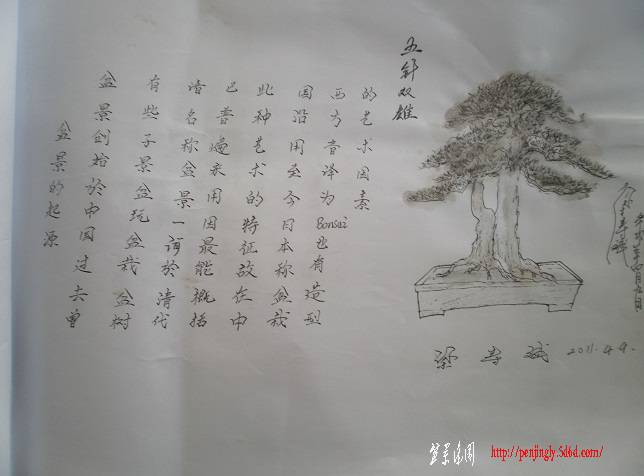 盆景的起源
盆景创始於中国过去曾
有些子景盆玩盆栽盆树
诸名称盆景一词於清代
已普遍采用因最能概括
此种艺术的特征故在中
国沿用至今日本称盆栽
西方音译为Bonsai也有造型
的艺术因素
五針双雄
2011.4.9.
http://penjingly.5d6d.com/